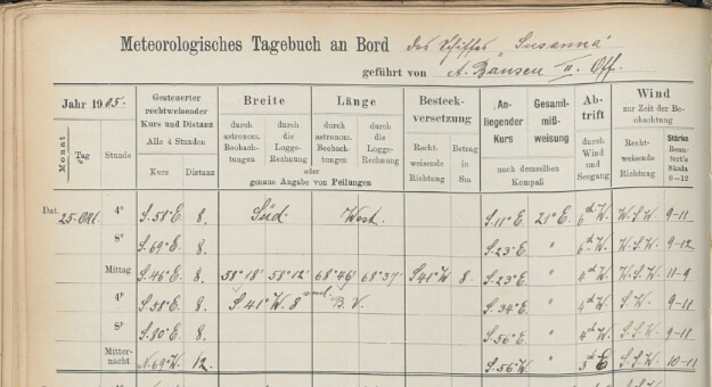 Meteorologisches Tagebuch an Bord des Schiffes „Susanna“
geführt von A. Bansen II. Off.
Jahr 1905.
Gesteuerter rechtweisender Kurs und Distanz Alle 4 Stunden
Breite
Länge
Besteckversetzung
Anliegender Kurs
Gesamtmißweisung
Abtrift
Wind zur Zeit der Beobachtung
Monat Tag Stunde
Kurs Distanz
durch astronom. Beobachtungen
durch die Logge-Rechnung
durch astronom. Beobachtungen
durch die Logge-Rechnung
oder
genaue Angabe von Peilungen
Rechtweisende Richtung
Betrag in Sm
nach demselben Kompaß
durch Wind und Seegang
Rechtweisende Richtung
Stärke Beaufort's Skala 0–12
Dat. 25. Okt. 4ª S. 58° E. 8. Süd. West. S. 11° E. 21° E. 6 W. W.S.W. 9-11
8ª S. 69° E. 8. S. 23° E „ 6 W. W.S.W. 9-12
Mittag S. 46° E. 8. 58° 18' 58° 12' 68° 46' 68° 37' S 41° W 8. S. 23° E „ 4 W. W.S.W. 11-9
4ᵖ S. 58° E. 8. S 41° W. 8 B. V. S. 34° E. „ 4 W. S.W. 9-11
8ᵖ S. 80° E. 8. S. 56° E. „ 4 W. S.S.W. 9-11
Mitternacht N. 69° W. 12. S. 56 W. „ E S.S.W. 10-11